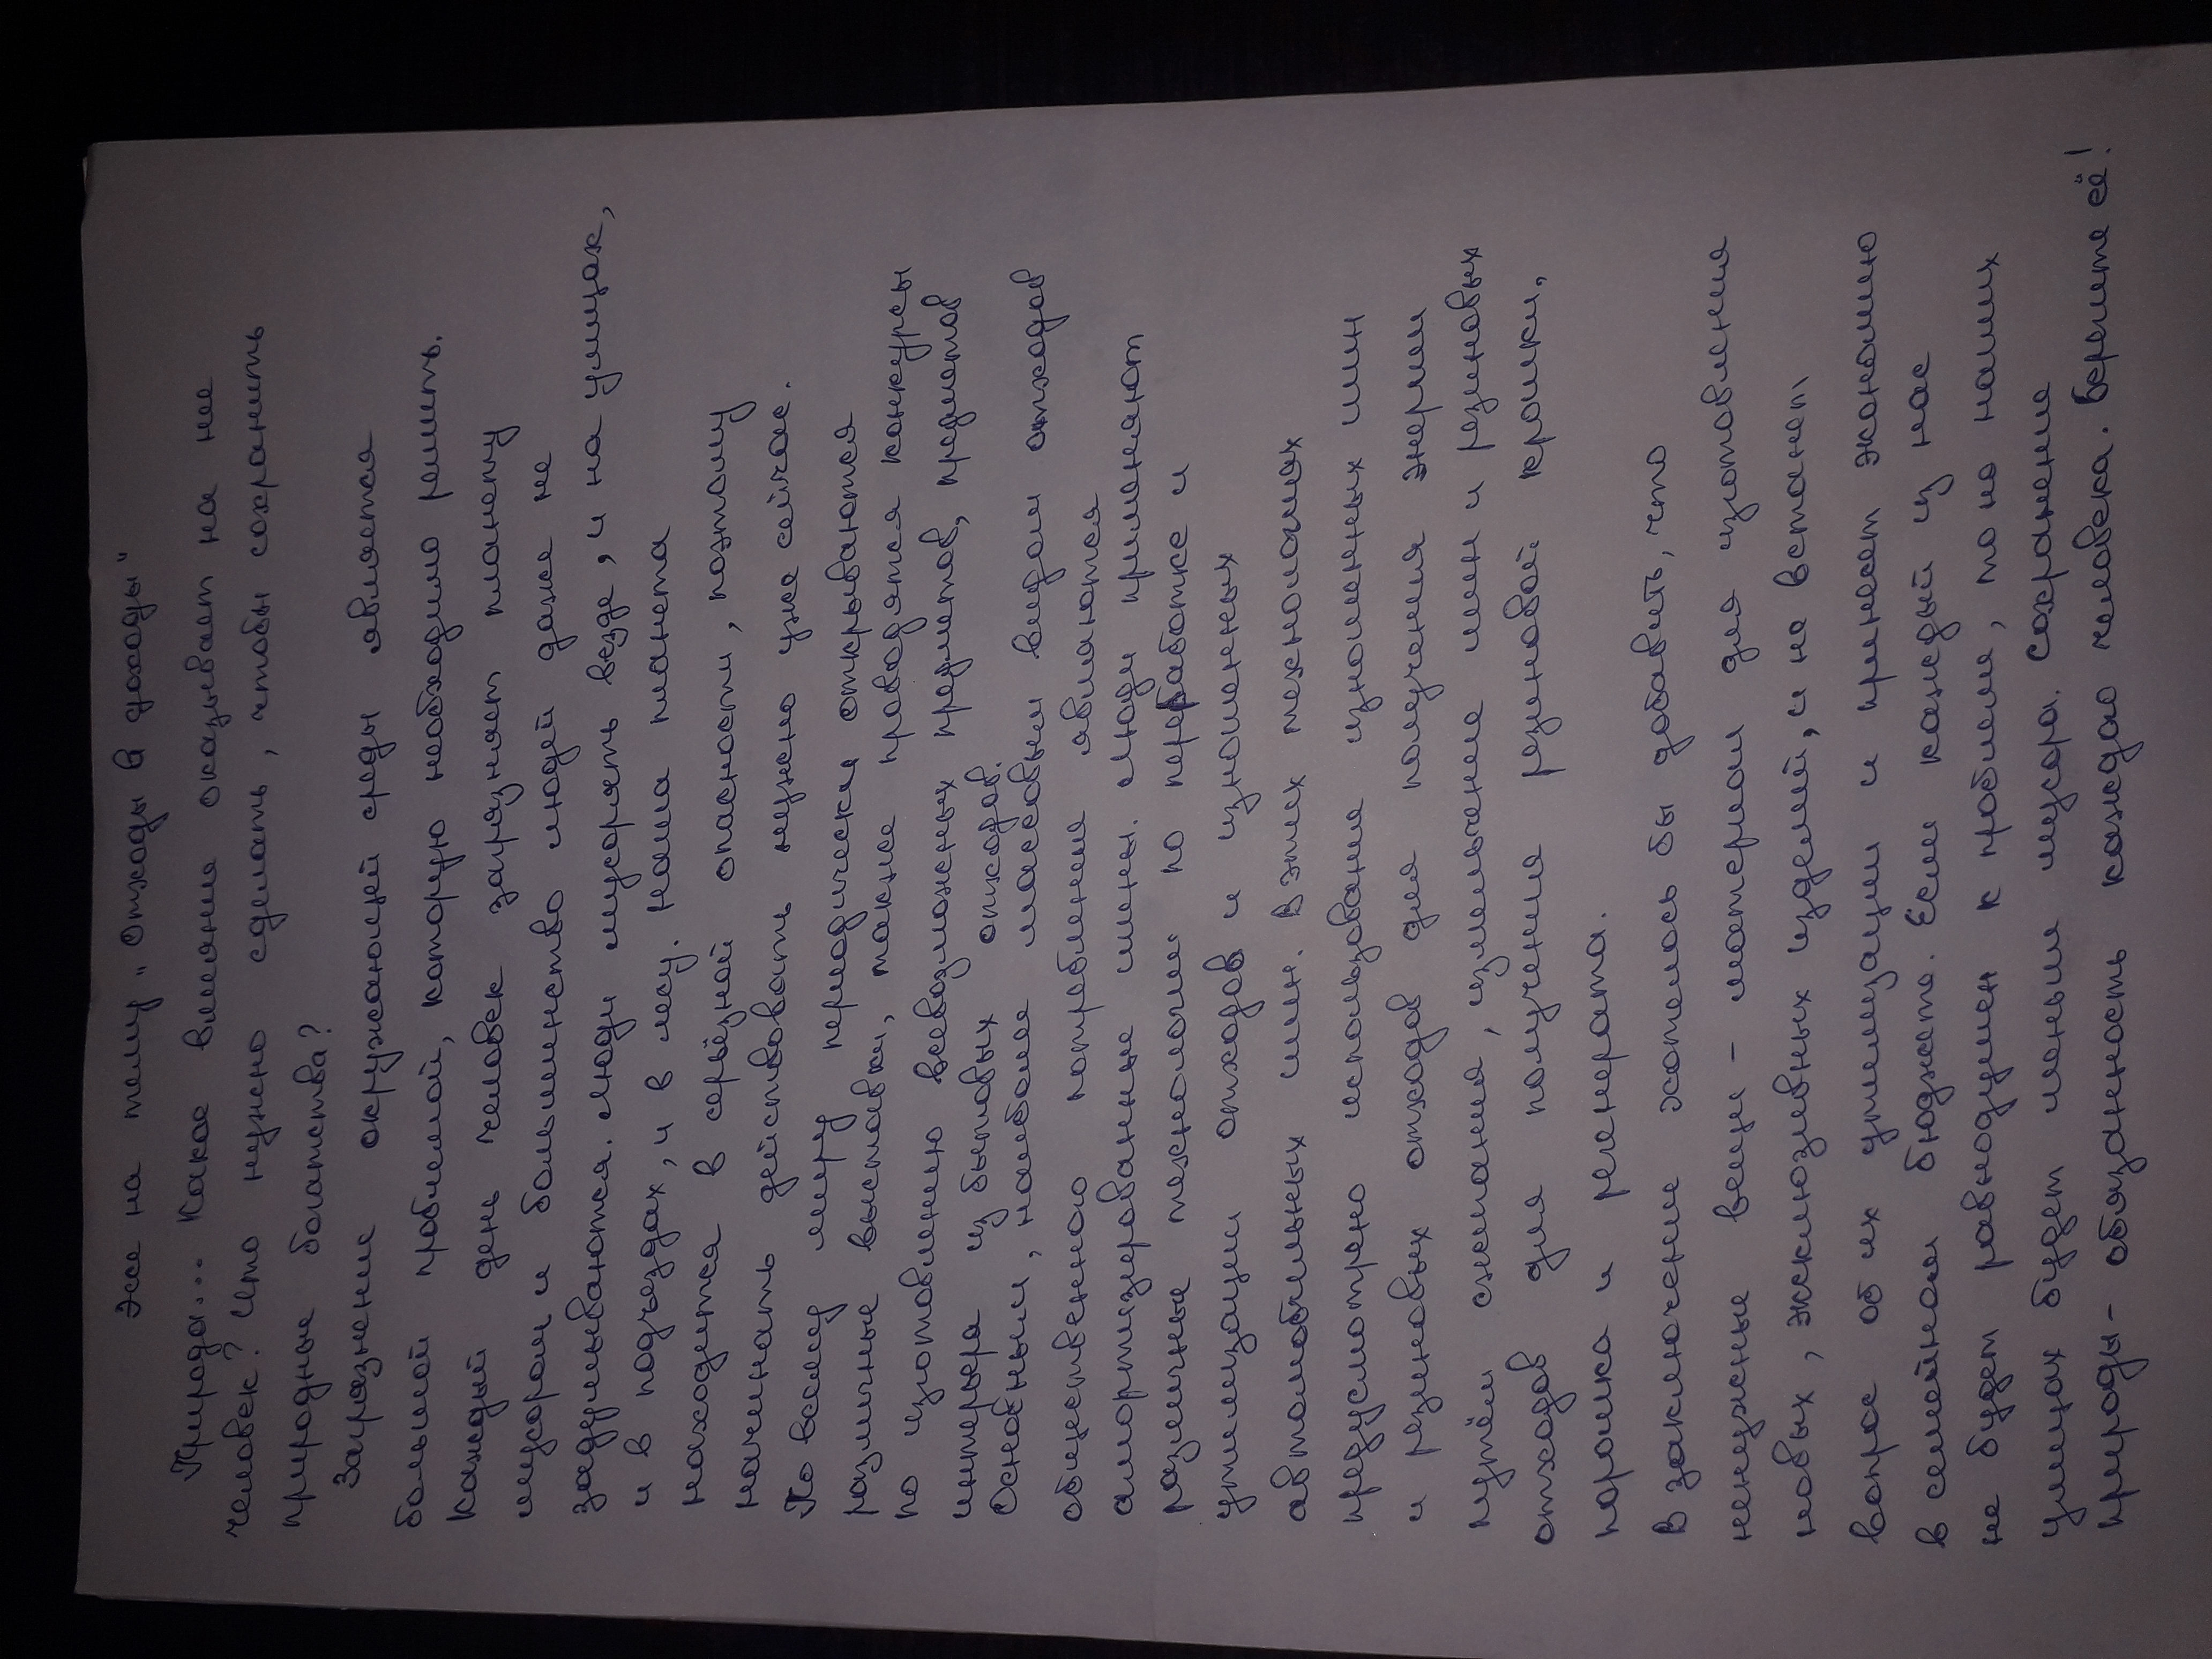 Эссе на тему „Отходы в доходы"
Природа... Какое влияние оказывает на нее
человек? Что нужно сделать, чтобы сохранить
природные богатства?
Загрязнение окружающей среды является
большой проблемой, которую необходимо решить.
Каждый день человек загрязняет планету
мусором и большинство людей даже не
задумываются. Люди мусорять везде, и на улицах,
и в подъездах, и в лесу. Наша планета
находится в серьёзной опасности, поэтому
начинать действовать нужно уже сейчас.
По всему миру периодически открываются
различные выставки, также проводятся конкурсы
по изготовлению всевозможных предметов, предметов
интерьера из бытовых отходов.
Основным, наиболее массовым видом отходов
общественного потребления являются
амортизированные шины. Люди применяют
различные технологии по переработке и
утилизации отходов и изношенных
автомобильных шин. В этих технологиях
предусмотрено использование изношенных шин
и резиновых отходов для получения энергии
путём сжигания, измельчение шин и резиновых
отходов для получения резиновой крошки,
порошка и регенерата.
В заключение хотелось бы добавить, что
ненужные вещи - материал для изготовления
новых, эксклюзивных изделий, и не встанет
вопрос об их утилизации и принесет экономию
в семейном бюджете. Если каждый из нас
не будет равнодушен к проблеме, то на наших
улицах будет меньше мусора. Сохранение
природы- обязанность каждого человека. Берегите её!